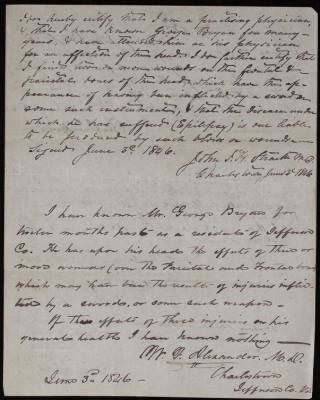 I do hereby certify that I am a practising physician,
& that I have known George Bryan for many
years, & have attended him as his physician
for an affection of the head. I do further certify that
I find two or more wounds on the frontal &
parietal bones of the head, which have the ap-
pearance of having been inflicted by a sword or
some such instrument, & that the disease under
which he has suffered (Epilepsy) is one liable
to be produced by such blows or wounds
Signed June 3d. 1846.
John M.D.
Charlestown June 3d 1846
I have known Mr. George Bryan for
twelve months past as a resident of Jefferson
Co. He has upon his head the effects of three or
more wounds (over the Parietal and Frontal bones)
which may have been the result of injuries inflic-
ted by a sword, or some such weapon.
If the effects of these injuries on his
general health I have known nothing
W. F. Alexander. M.D.
June 3d 1846 — Charlestown
Jefferson Co. Va